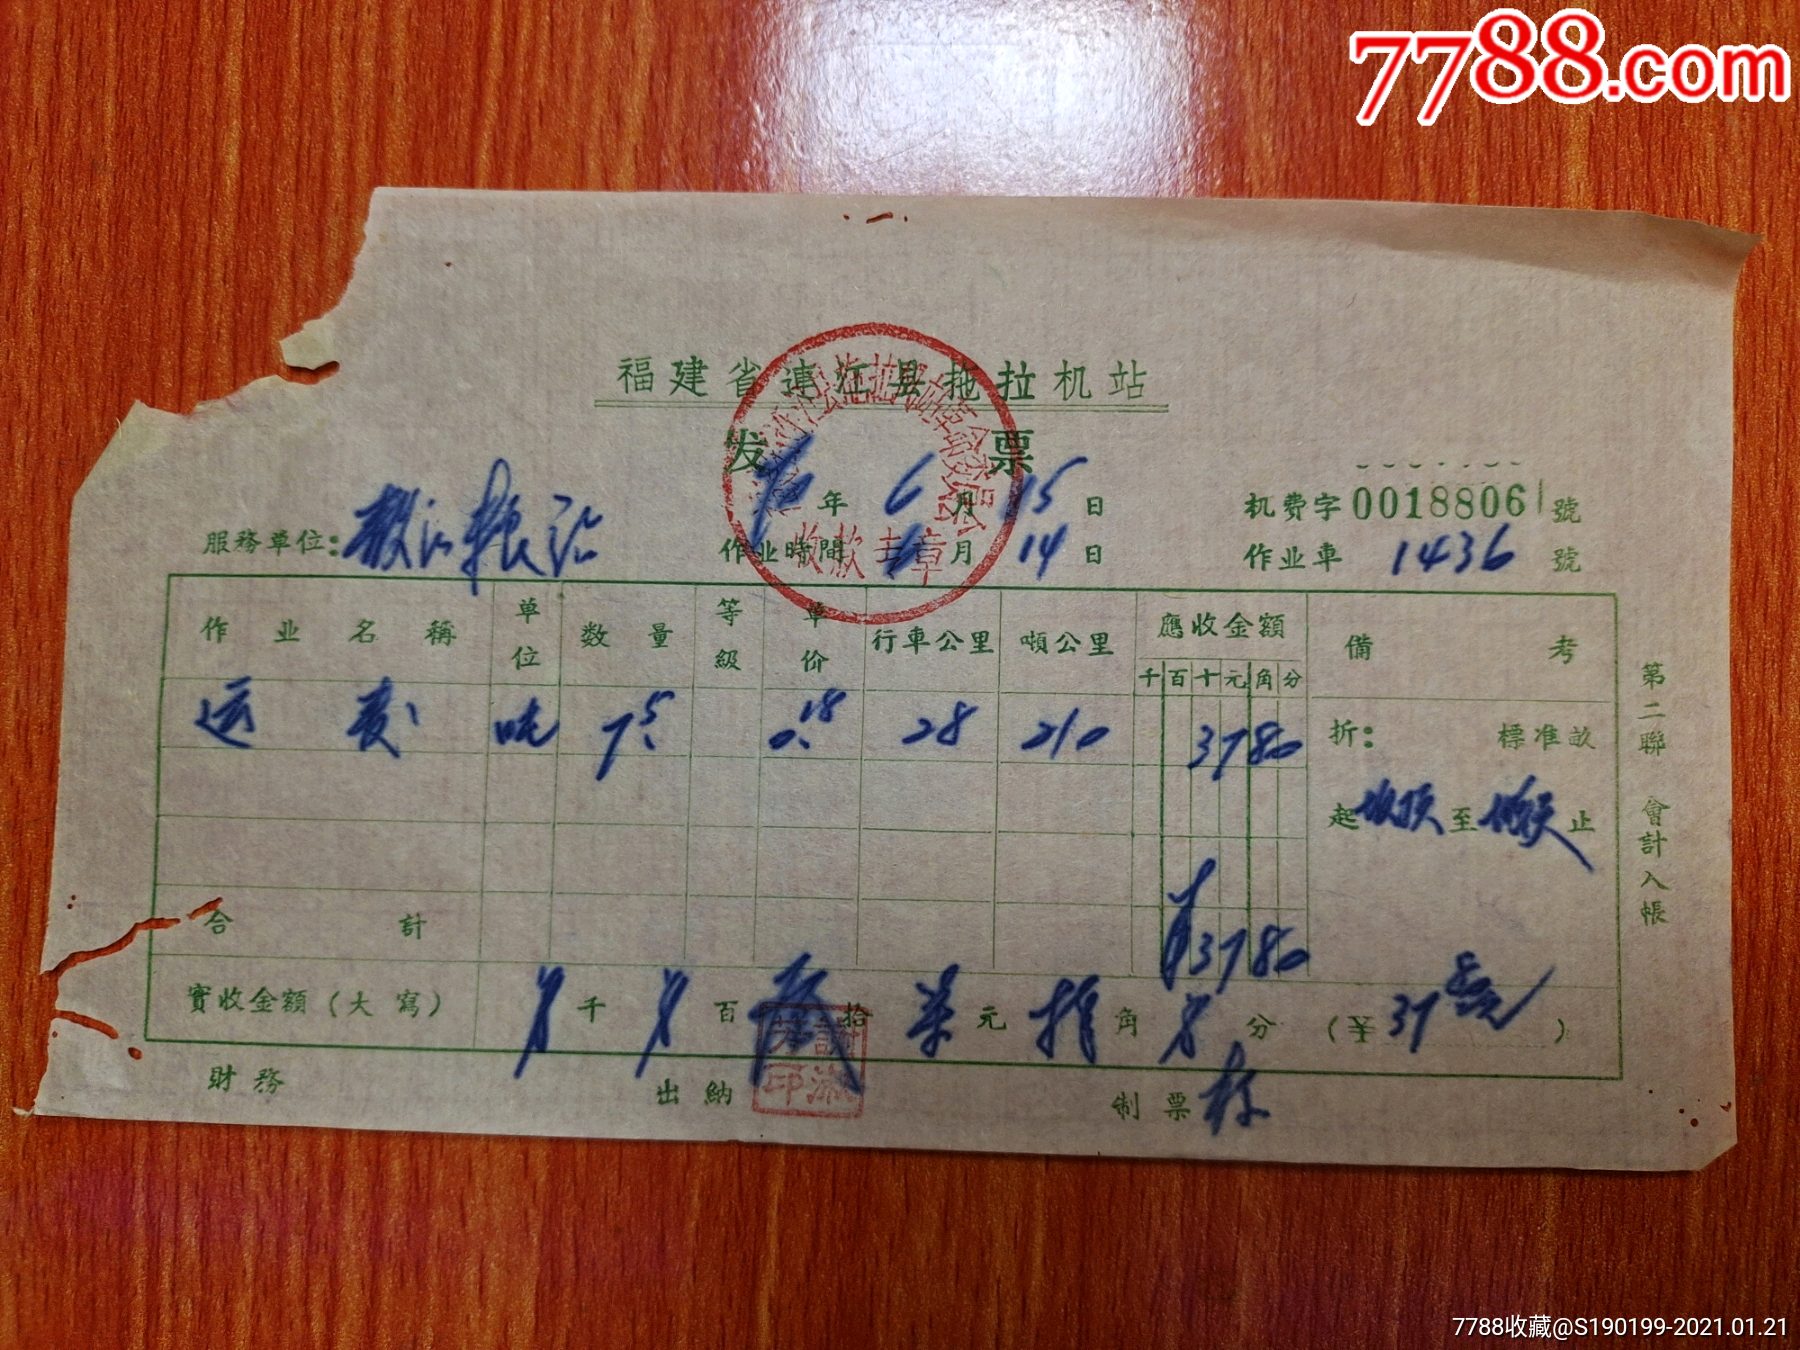 7788.com
福建省連江县拖拉机站
发票
70年6月15日
机费字0018806號
服務单位:敖江粮站
作业時間6月14日
作业車1436號
收款专章
作业名稱 单位 数量 等級 单价 行車公里 噸公里 應收金額 備考
千百十元角分
运费 吨 7.5 0.18 28 210 3780 折: 標准畝
起 至 止
合計 ¥3780
實收金額(大寫) 千 百 叁拾柒元捌角 分 (¥37.80元)
財務 出納 制票林
第二聯 會計入帳
7788收藏@S190199-2021.01.21